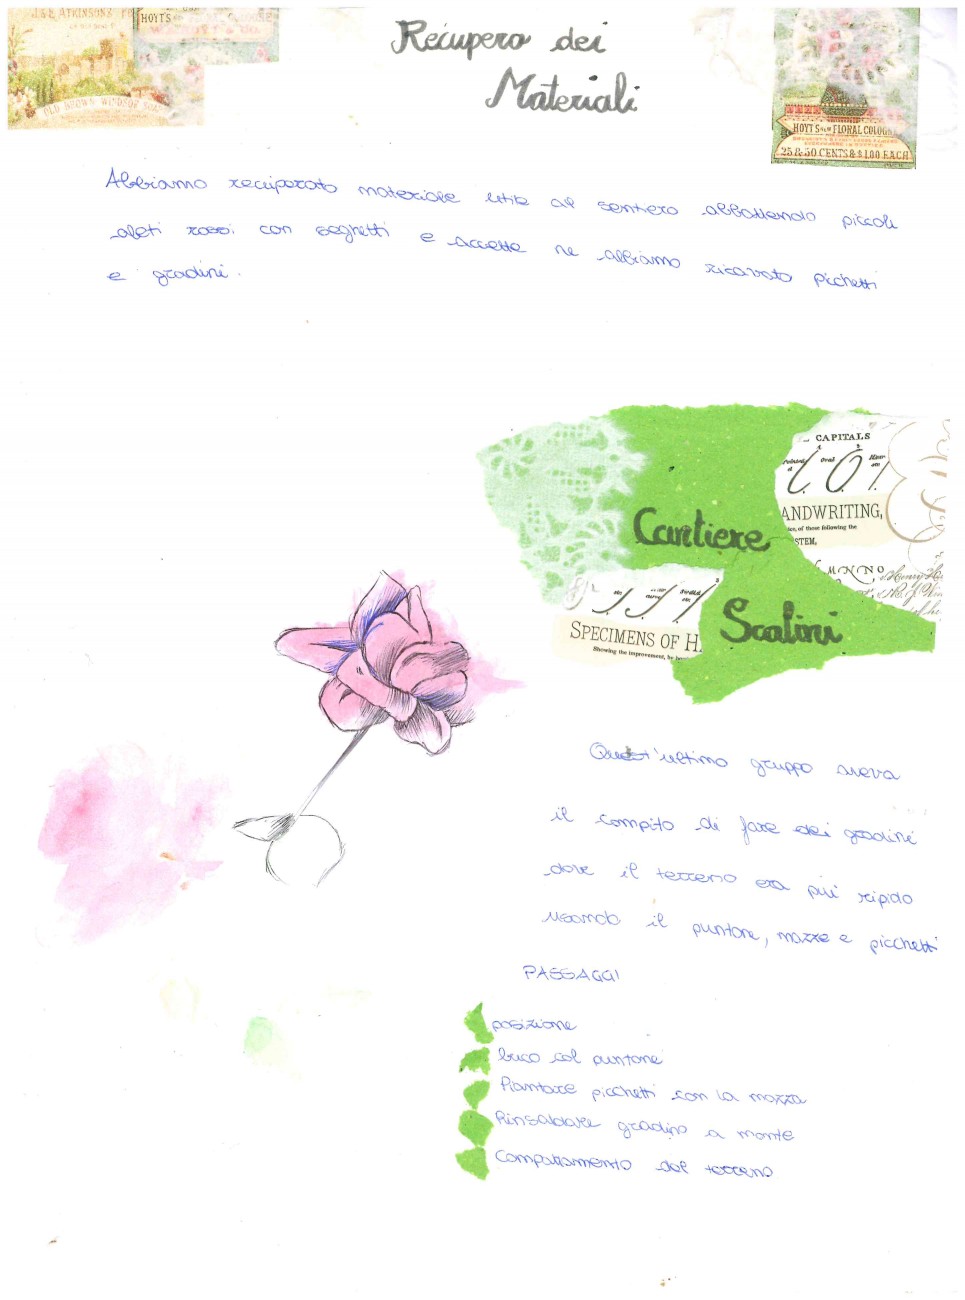 J. & E. ATKINSON'S
OLD BROWN WINDSOR SOAP
HOYT'S
Recupero dei
Materiali
HOYT'S FLORAL COLOGNE
25 & 50 CENTS & $1.00 EACH
Abbiamo recuperato materiale utile al sentiero abbattendo piccoli
abeti rossi con seghetti e accette ne abbiamo ricavato picchetti
e gradini.
CAPITALS
Oval
ANDWRITING,
of those following the
STEM,
M N N O
Cantiere
Scalini
SPECIMENS OF H
Showing the improvement, by
Quest'ultimo gruppo aveva
il compito di fare dei gradini
dove il terreno era più ripido
usando il puntone, mazze e picchetti
PASSAGGI
posizione
buco col puntone
Piantare picchetti con la mazza
Rinsaldare gradino a monte
Compattamento del terreno